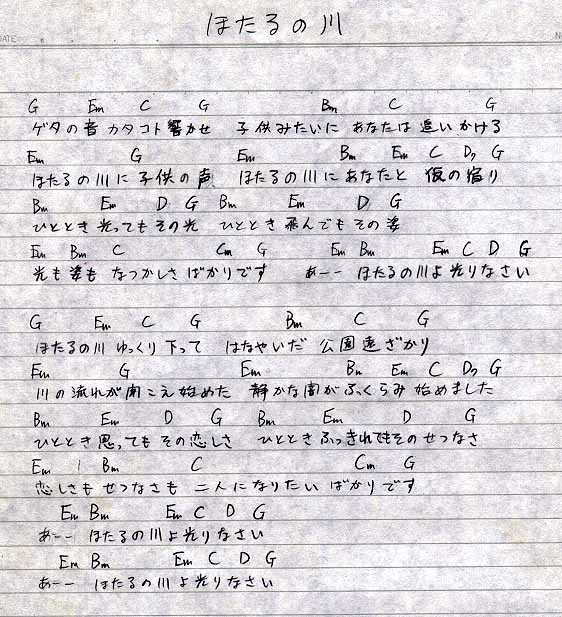 DATE
ほたるの川
G Em C G Bm C G
ゲタの音カタコト響かせ 子供みたいに あなたは追いかける
Em G Em Bm Em C D7 G
ほたるの川に子供の声 ほたるの川にあなたと 仮の宿り
Bm Em D G Bm Em D G
ひととき光ってもその光 ひととき飛んでもその姿
Em Bm C Cm G Em Bm Em C D G
光も姿も なつかしさばかりです あーー ほたるの川よ光りなさい
G Em C G Bm C G
ほたるの川ゆっくり下って はなやいだ 公園遠ざかり
Em G Em Bm Em C D7 G
川の流れが聞こえ始めた 静かな闇がふくらみ始めました
Bm Em D G Bm Em D G
ひととき思ってもその恋しさ ひとときふっきれてもそのせつなさ
Em Bm C Cm G
恋しさも せつなさも 二人になりたい ばかりです
Em Bm Em C D G
あーー ほたるの川よ光りなさい
Em Bm Em C D G
あーー ほたるの川よ光りなさい